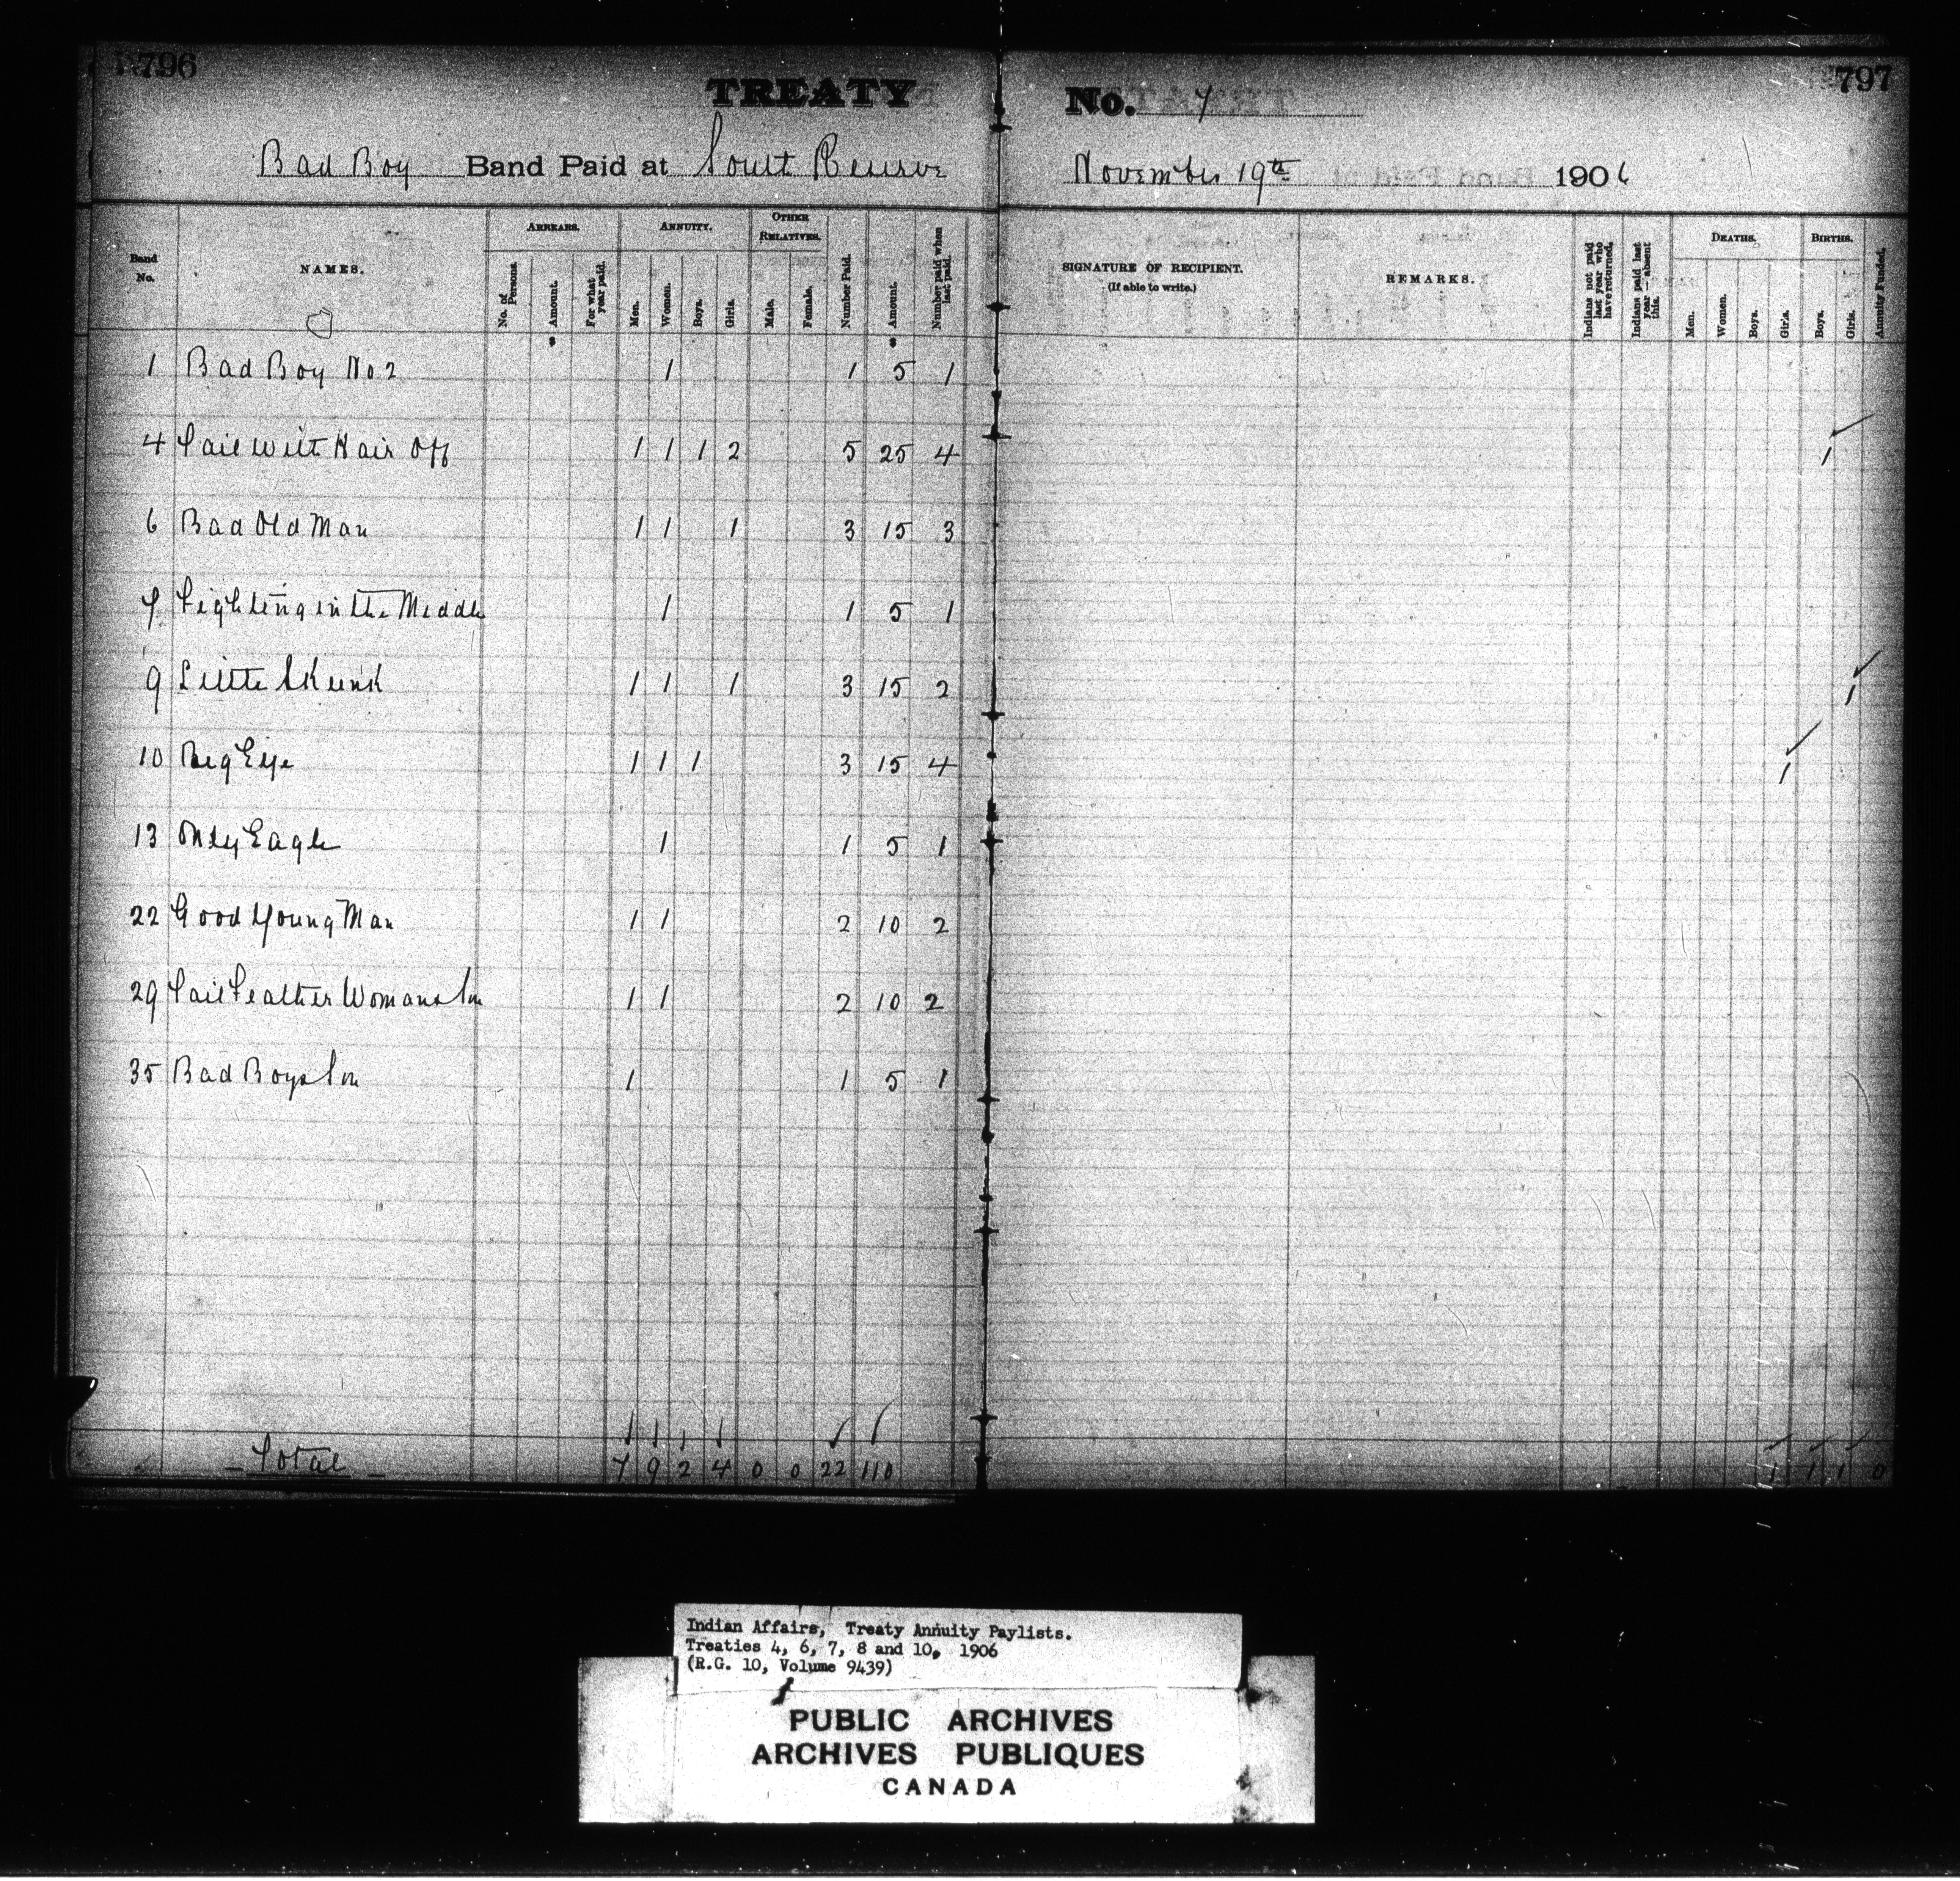 796
TREATY
Bad Boy Band Paid at South Reserve
Band No. NAMES. ARREARS. ANNUITY. OTHER RELATIVES.
No. of Persons. Amount. For what year paid. Men. Women. Boys. Girls. Male. Female. Number Paid. Amount. Number paid when last paid.
1 Bad Boy No 2 1 1 5 1
4 Tail with Hair Off 1 1 1 2 5 25 4
6 Bad Old Man 1 1 1 3 15 3
7 Fighting in the Middle 1 1 5 1
9 Little Skunk 1 1 1 3 15 2
10 Big Eye 1 1 1 3 15 4
13 Only Eagle 1 1 5 1
22 Good Young Man 1 1 2 10 2
29 Tail Feather Womans Son 1 1 2 10 2
35 Bad Boys Son 1 1 5 1
Total 7 9 2 4 0 0 22 110
797
No. 7
November 19th 1906
SIGNATURE OF RECIPIENT. (If able to write.) REMARKS. Indians not paid last year who have returned. Indians paid last year—absent this. DEATHS. BIRTHS. Annuity Funded.
Men. Women. Boys. Girls. Boys. Girls.
1
1
1
1 1 1 0
Indian Affairs, Treaty Annuity Paylists.
Treaties 4, 6, 7, 8 and 10, 1906
(R.G. 10, Volume 9439)
PUBLIC ARCHIVES
ARCHIVES PUBLIQUES
CANADA